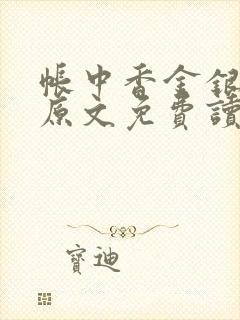 帳中香金銀
原文免費讀
寶迪